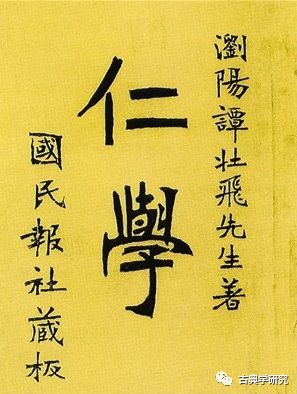 瀏陽譚壯飛先生著
仁學
國民報社蔵板
古典学研究